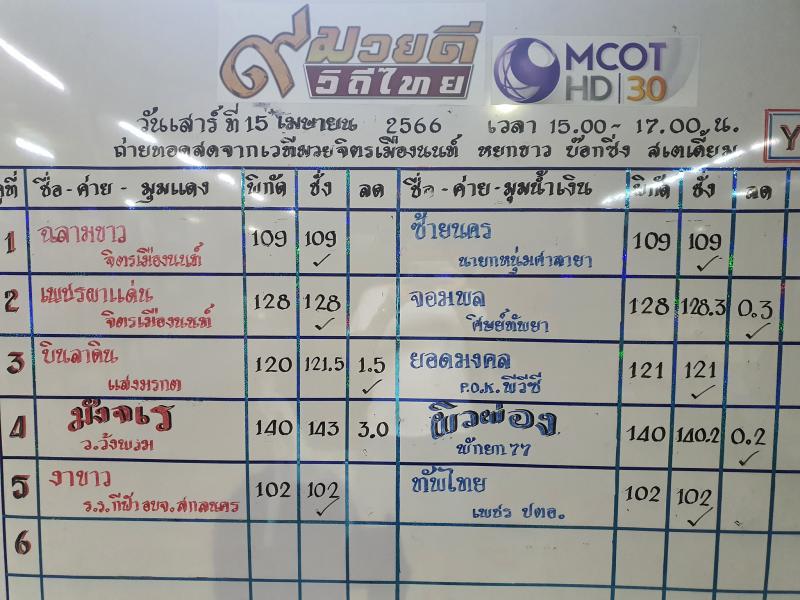 ๙มวยดี
วิถีไทย
MCOT
HD|30
วันเสาร์ ที่ 15 เมษายน 2566 เวลา 15.00 - 17.00 น.
ถ่ายทอดสดจากเวทีมวยจิตรเมืองนนท์ หยกขาว บ๊อกซิ่ง สเตเดี้ยม
คู่ที่ ชื่อ - ค่าย - มุมแดง พิกัด ชั่ง ลด ชื่อ - ค่าย - มุมน้ำเงิน พิกัด ชั่ง ลด
1 ฉลามขาว 109 109 ซ้ายนคร 109 109
จิตรเมืองนนท์ ✓ นายกหนุ่มศาลายา ✓
2 เพชรผาแด่น 128 128 จอมพล 128 128.3 0.3
จิตรเมืองนนท์ ✓ ศิษย์ทัพยา ✓
3 บินลาดิน 120 121.5 1.5 ยอดมงคล 121 121
แสงมรกต ✓ P.O.K. พีวีซี ✓
4 มังจเร 140 143 3.0 พิวผ่อง 140 140.2 0.2
ว.วังพรม พักยก 77 ✓
5 งาขาว 102 102 ทัพไทย 102 102
ร.ร.กีฬา อบจ.สกลนคร ✓ เพชร ปตอ. ✓
6